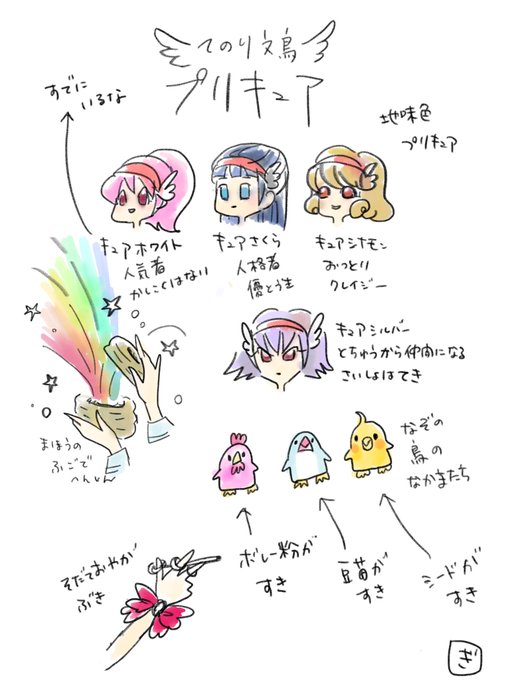 てのり文鳥
プリキュア
すでに
いるな
地味色
プリキュア
キュアホワイト
人気者
かしこくはない
キュアさくら
人格者
優とう生
キュアシナモン
おっとり
クレイジー
キュアシルバー
とちゅうから仲間になる
さいしょはてき
まほうの
ふごで
へんしん
なぞの
鳥の
なかまたち
ボレー粉が
すき
豆苗が
すき
シードが
すき
そだておやが
ぶき
ぎ